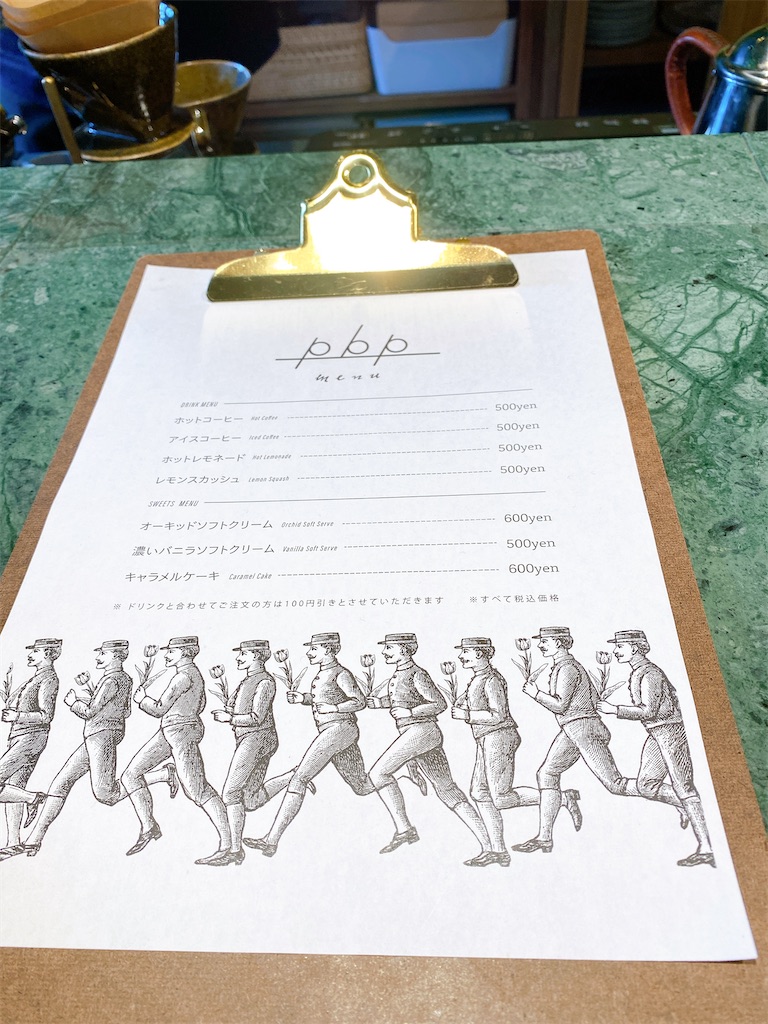 pbp
menu
DRINK MENU
ホットコーヒー Hot Coffee 500yen
アイスコーヒー Iced Coffee 500yen
ホットレモネード Hot Lemonade 500yen
レモンスカッシュ Lemon Squash 500yen
SWEETS MENU
オーキッドソフトクリーム Orchid Soft Serve 600yen
濃いバニラソフトクリーム Vanilla Soft Serve 500yen
キャラメルケーキ Caramel Cake 600yen
※ ドリンクと合わせてご注文の方は100円引きとさせていただきます ※すべて税込価格